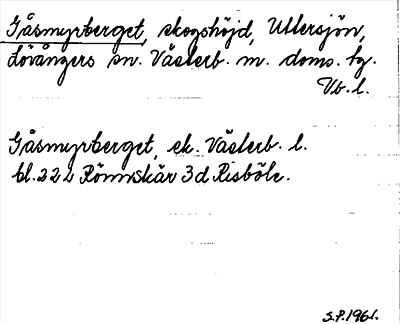 Gåsmyrberget, skogshöjd, Uttersjön,
Lövångers sn. Västerb. m. doms. tg.
Vb. l.
Gåsmyrberget, ek. Västerb. l.
bl. 22 L Rönnskär 3d Risböle.
S.P. 1961.